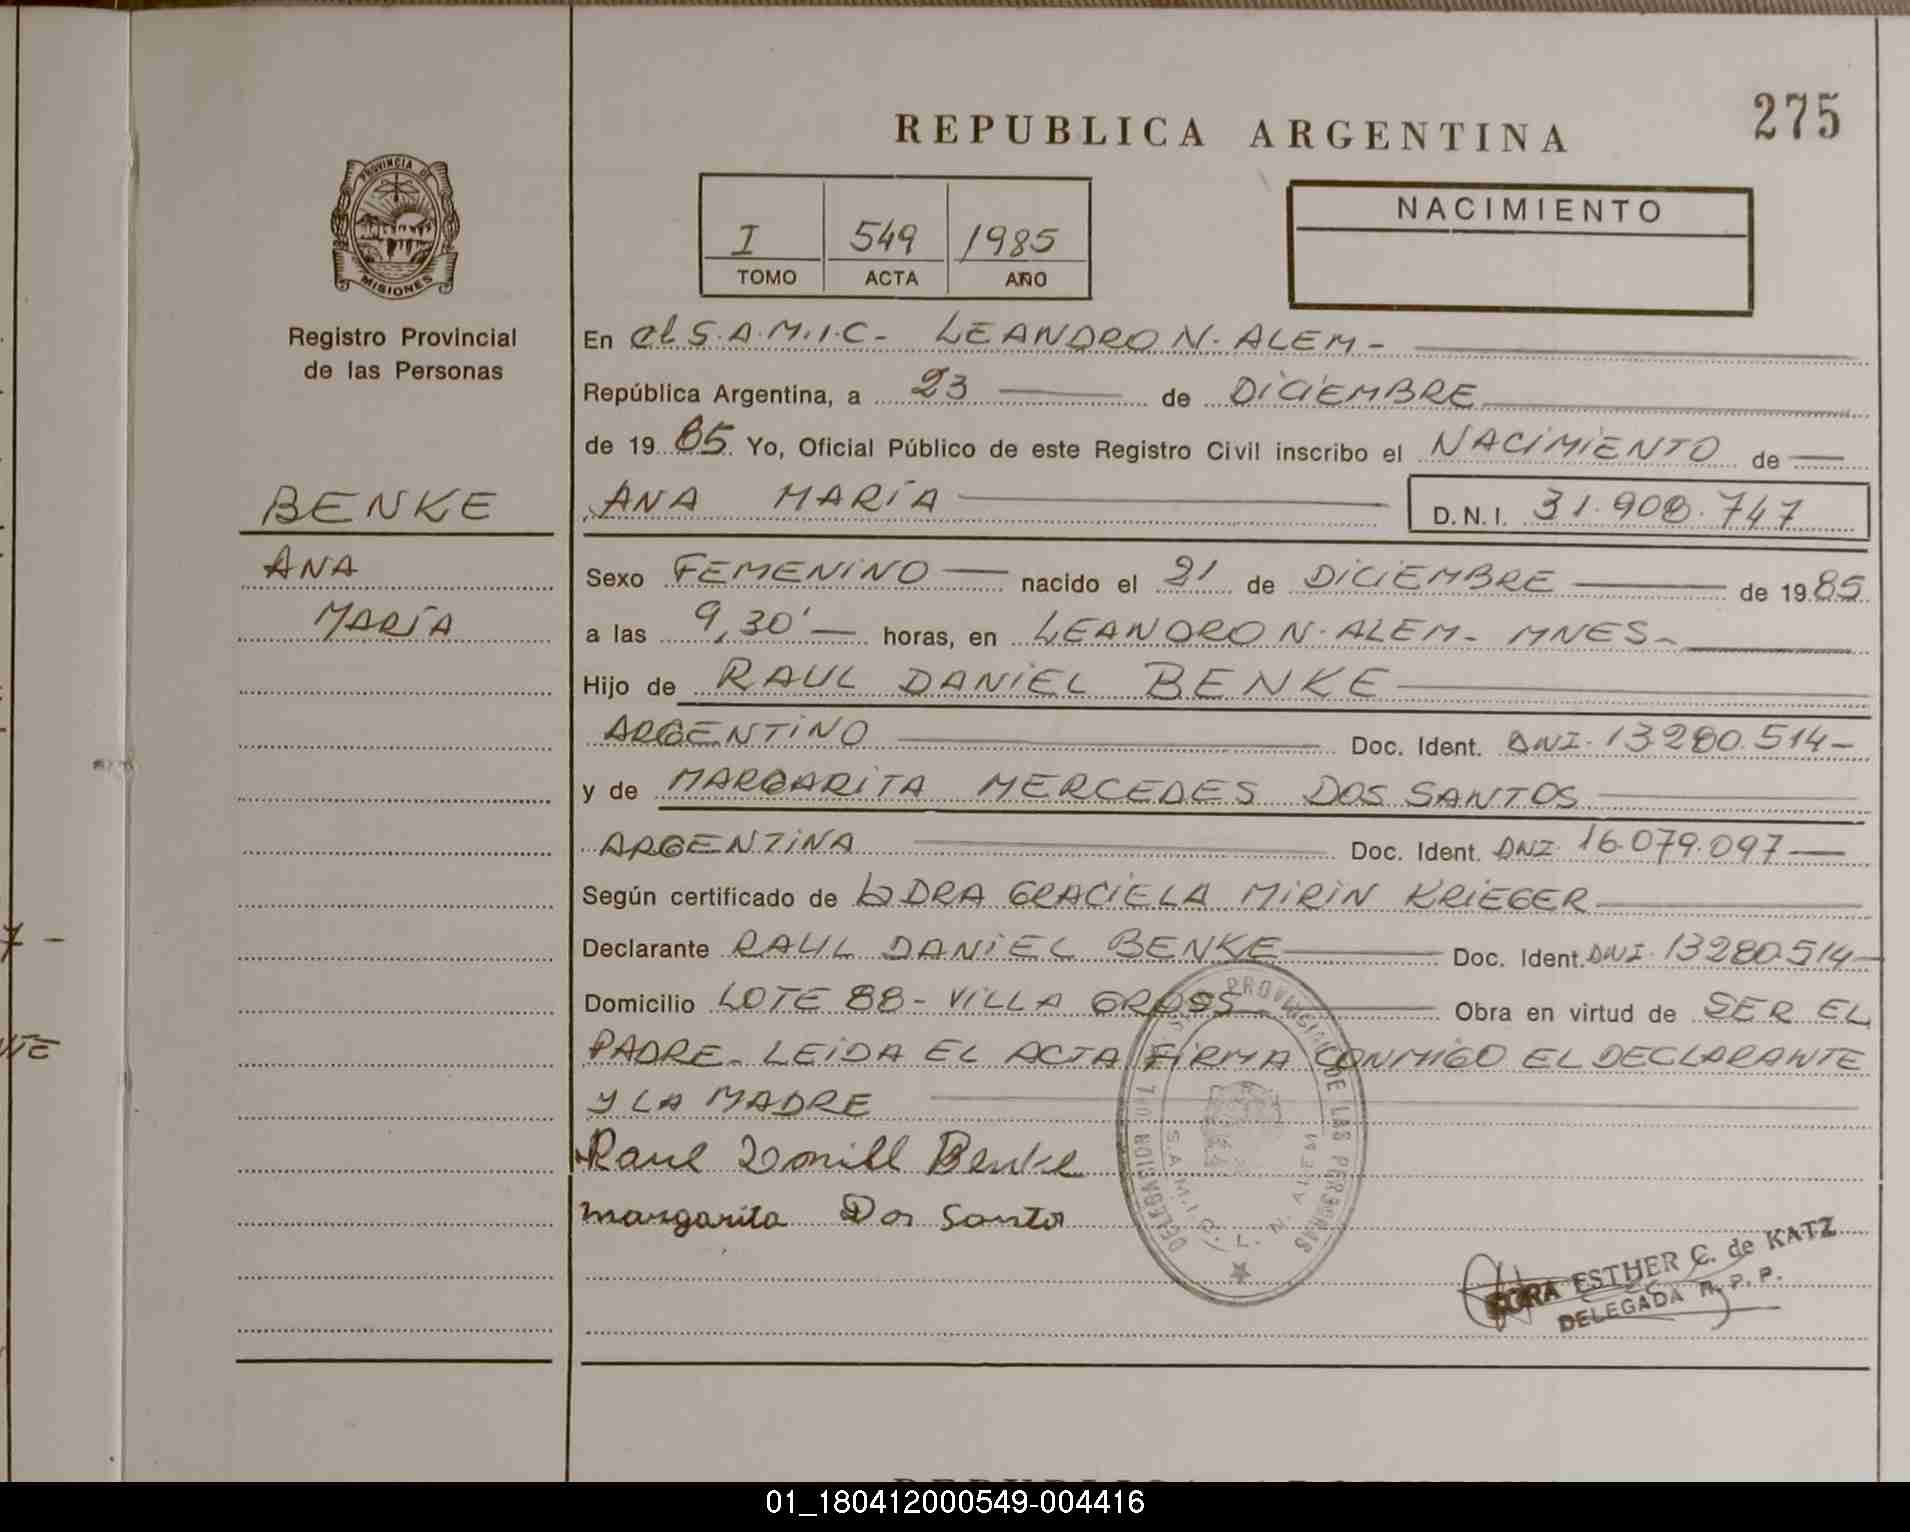 275
REPUBLICA ARGENTINA
PROVINCIA DE
MISIONES
Registro Provincial
de las Personas
I 549 1985
TOMO ACTA AÑO
NACIMIENTO
En el S.A.M.I.C- LEANDRO N. ALEM-
República Argentina, a 23 de DICIEMBRE
de 19 85. Yo, Oficial Público de este Registro Civil inscribo el NACIMIENTO de
BENKE
ANA
MARÍA
ANA MARÍA D.N.I. 31.908.747
Sexo FEMENINO nacido el 21 de DICIEMBRE de 1985
a las 9,30' horas, en LEANDRO N. ALEM- MNES-
Hijo de RAUL DANIEL BENKE
ARGENTINO Doc. Ident. DNI. 13.280.514-
y de MARGARITA MERCEDES DOS SANTOS
ARGENTINA Doc. Ident. DNI. 16.079.097-
Según certificado de la DRA GRACIELA MIRIN KRIEGER
Declarante RAUL DANIEL BENKE Doc. Ident. DNI. 13280514-
Domicilio LOTE 88- VILLA GROSS Obra en virtud de SER EL
PADRE- LEIDA EL ACTA FIRMA CONMIGO EL DECLARANTE
Y LA MADRE
Raul Daniel Benke
margarita Dos Santo
PROVINCIAL DE LAS PERSONAS
DELEGACION
S.A.M.I.C. L. N. ALEM
ESTHER C. de KATZ
DELEGADA R.P.P.
7 -
TE
01_180412000549-004416